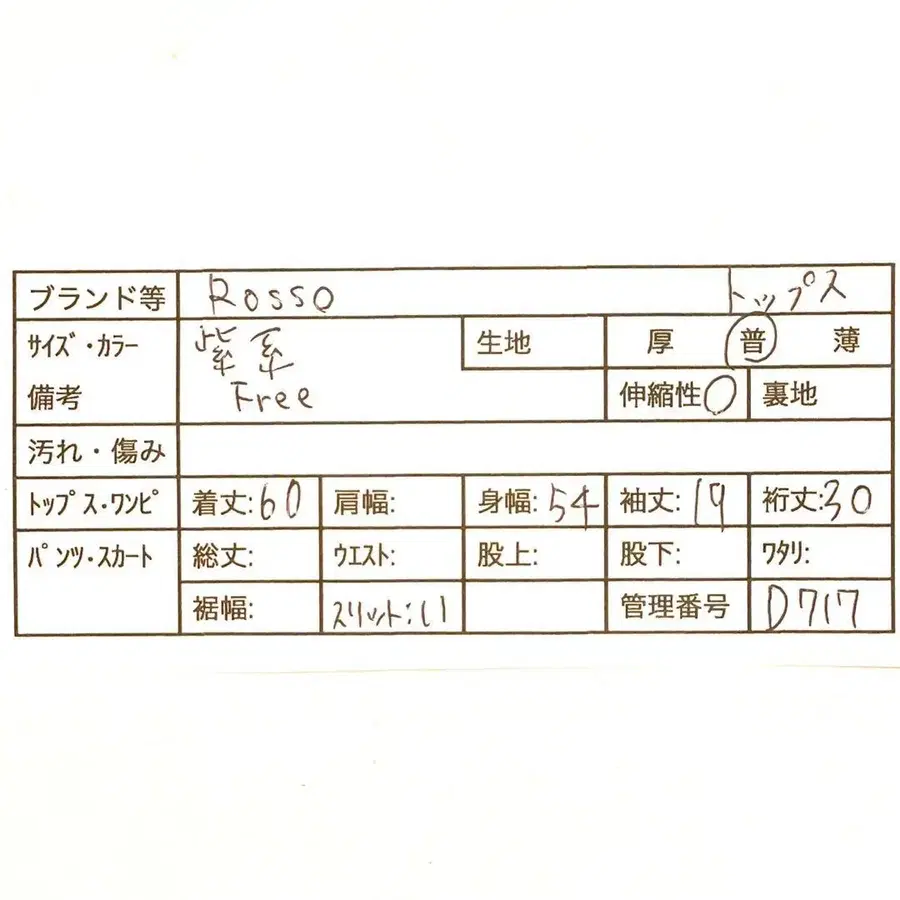 ブランド等 Rosso トップス
サイズ・カラー 紫系 生地 厚 普 薄
備考 Free 伸縮性○ 裏地
汚れ・傷み
トップス・ワンピ 着丈:60 肩幅: 身幅:54 袖丈:19 裄丈:30
パンツ・スカート 総丈: ウエスト: 股上: 股下: ワタリ:
裾幅: スリット:11 管理番号 D717